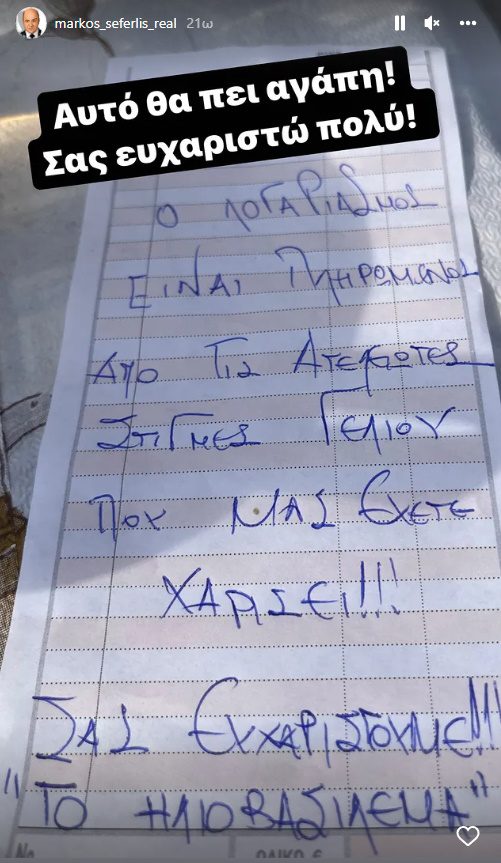 markos_seferlis_real 21ω
Αυτό θα πει αγάπη!
Σας ευχαριστώ πολύ!
Ο ΛΟΓΑΡΙΑΣΜΟΣ
ΕΙΝΑΙ ΠΛΗΡΩΜΕΝΟΣ
ΑΠΟ ΤΙΣ ΑΤΕΛΕΙΩΤΕΣ
ΣΤΙΓΜΕΣ ΓΕΛΙΟΥ
ΠΟΥ ΜΑΣ ΕΧΕΤΕ
ΧΑΡΙΣΕΙ!!!
ΣΑΣ ΕΥΧΑΡΙΣΤΟΥΜΕ!!!
"ΤΟ ΗΛΙΟΒΑΣΙΛΕΜΑ"